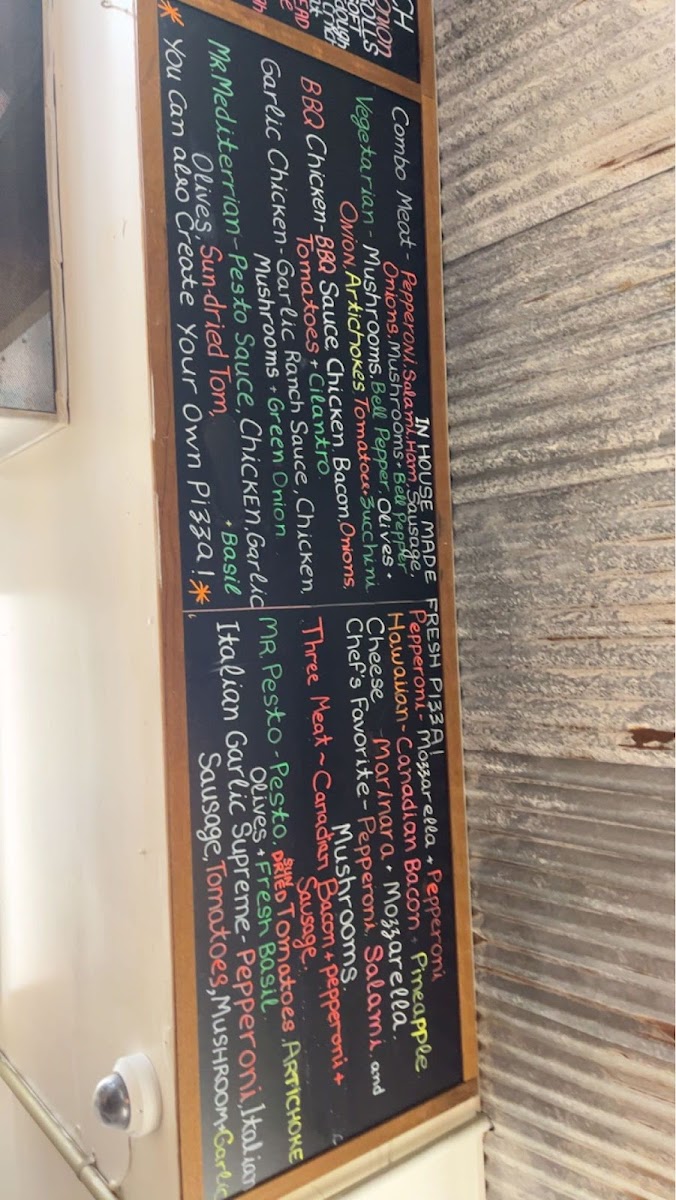 CH
ONION
ROLLS
SOFT
IN HOUSE MADE FRESH PIZZA!
Combo Meat - Pepperoni, Salami, Ham, Sausage,
Onions, Mushrooms + Bell Pepper
Vegetarian - Mushrooms, Bell Pepper, Olives +
Onion, Artichokes, Tomatoes + Zucchini
BBQ Chicken - BBQ Sauce, Chicken, Bacon, Onions,
Tomatoes + Cilantro
Garlic Chicken - Garlic Ranch Sauce, Chicken,
Mushrooms + Green Onion
MR. Mediterrian - Pesto Sauce, Chicken, Garlic
Olives, Sun-dried Tom, + Basil
* You Can also Create Your Own Pizza! *
Pepperoni - Mozzarella + Pepperoni
Hawaiian ~ Canadian Bacon + Pineapple
Cheese Marinara + Mozzarella
Chef's Favorite - Pepperoni, Salami, and
Mushrooms.
Three Meat ~ Canadian Bacon + Pepperoni +
Sausage.
MR. Pesto - Pesto, SUN DRIED Tomatoes, ARTICHOKE
Olives + Fresh Basil
Italian Garlic Supreme - Pepperoni, Italian
Sausage, Tomatoes, MUSHROOM + Garlic